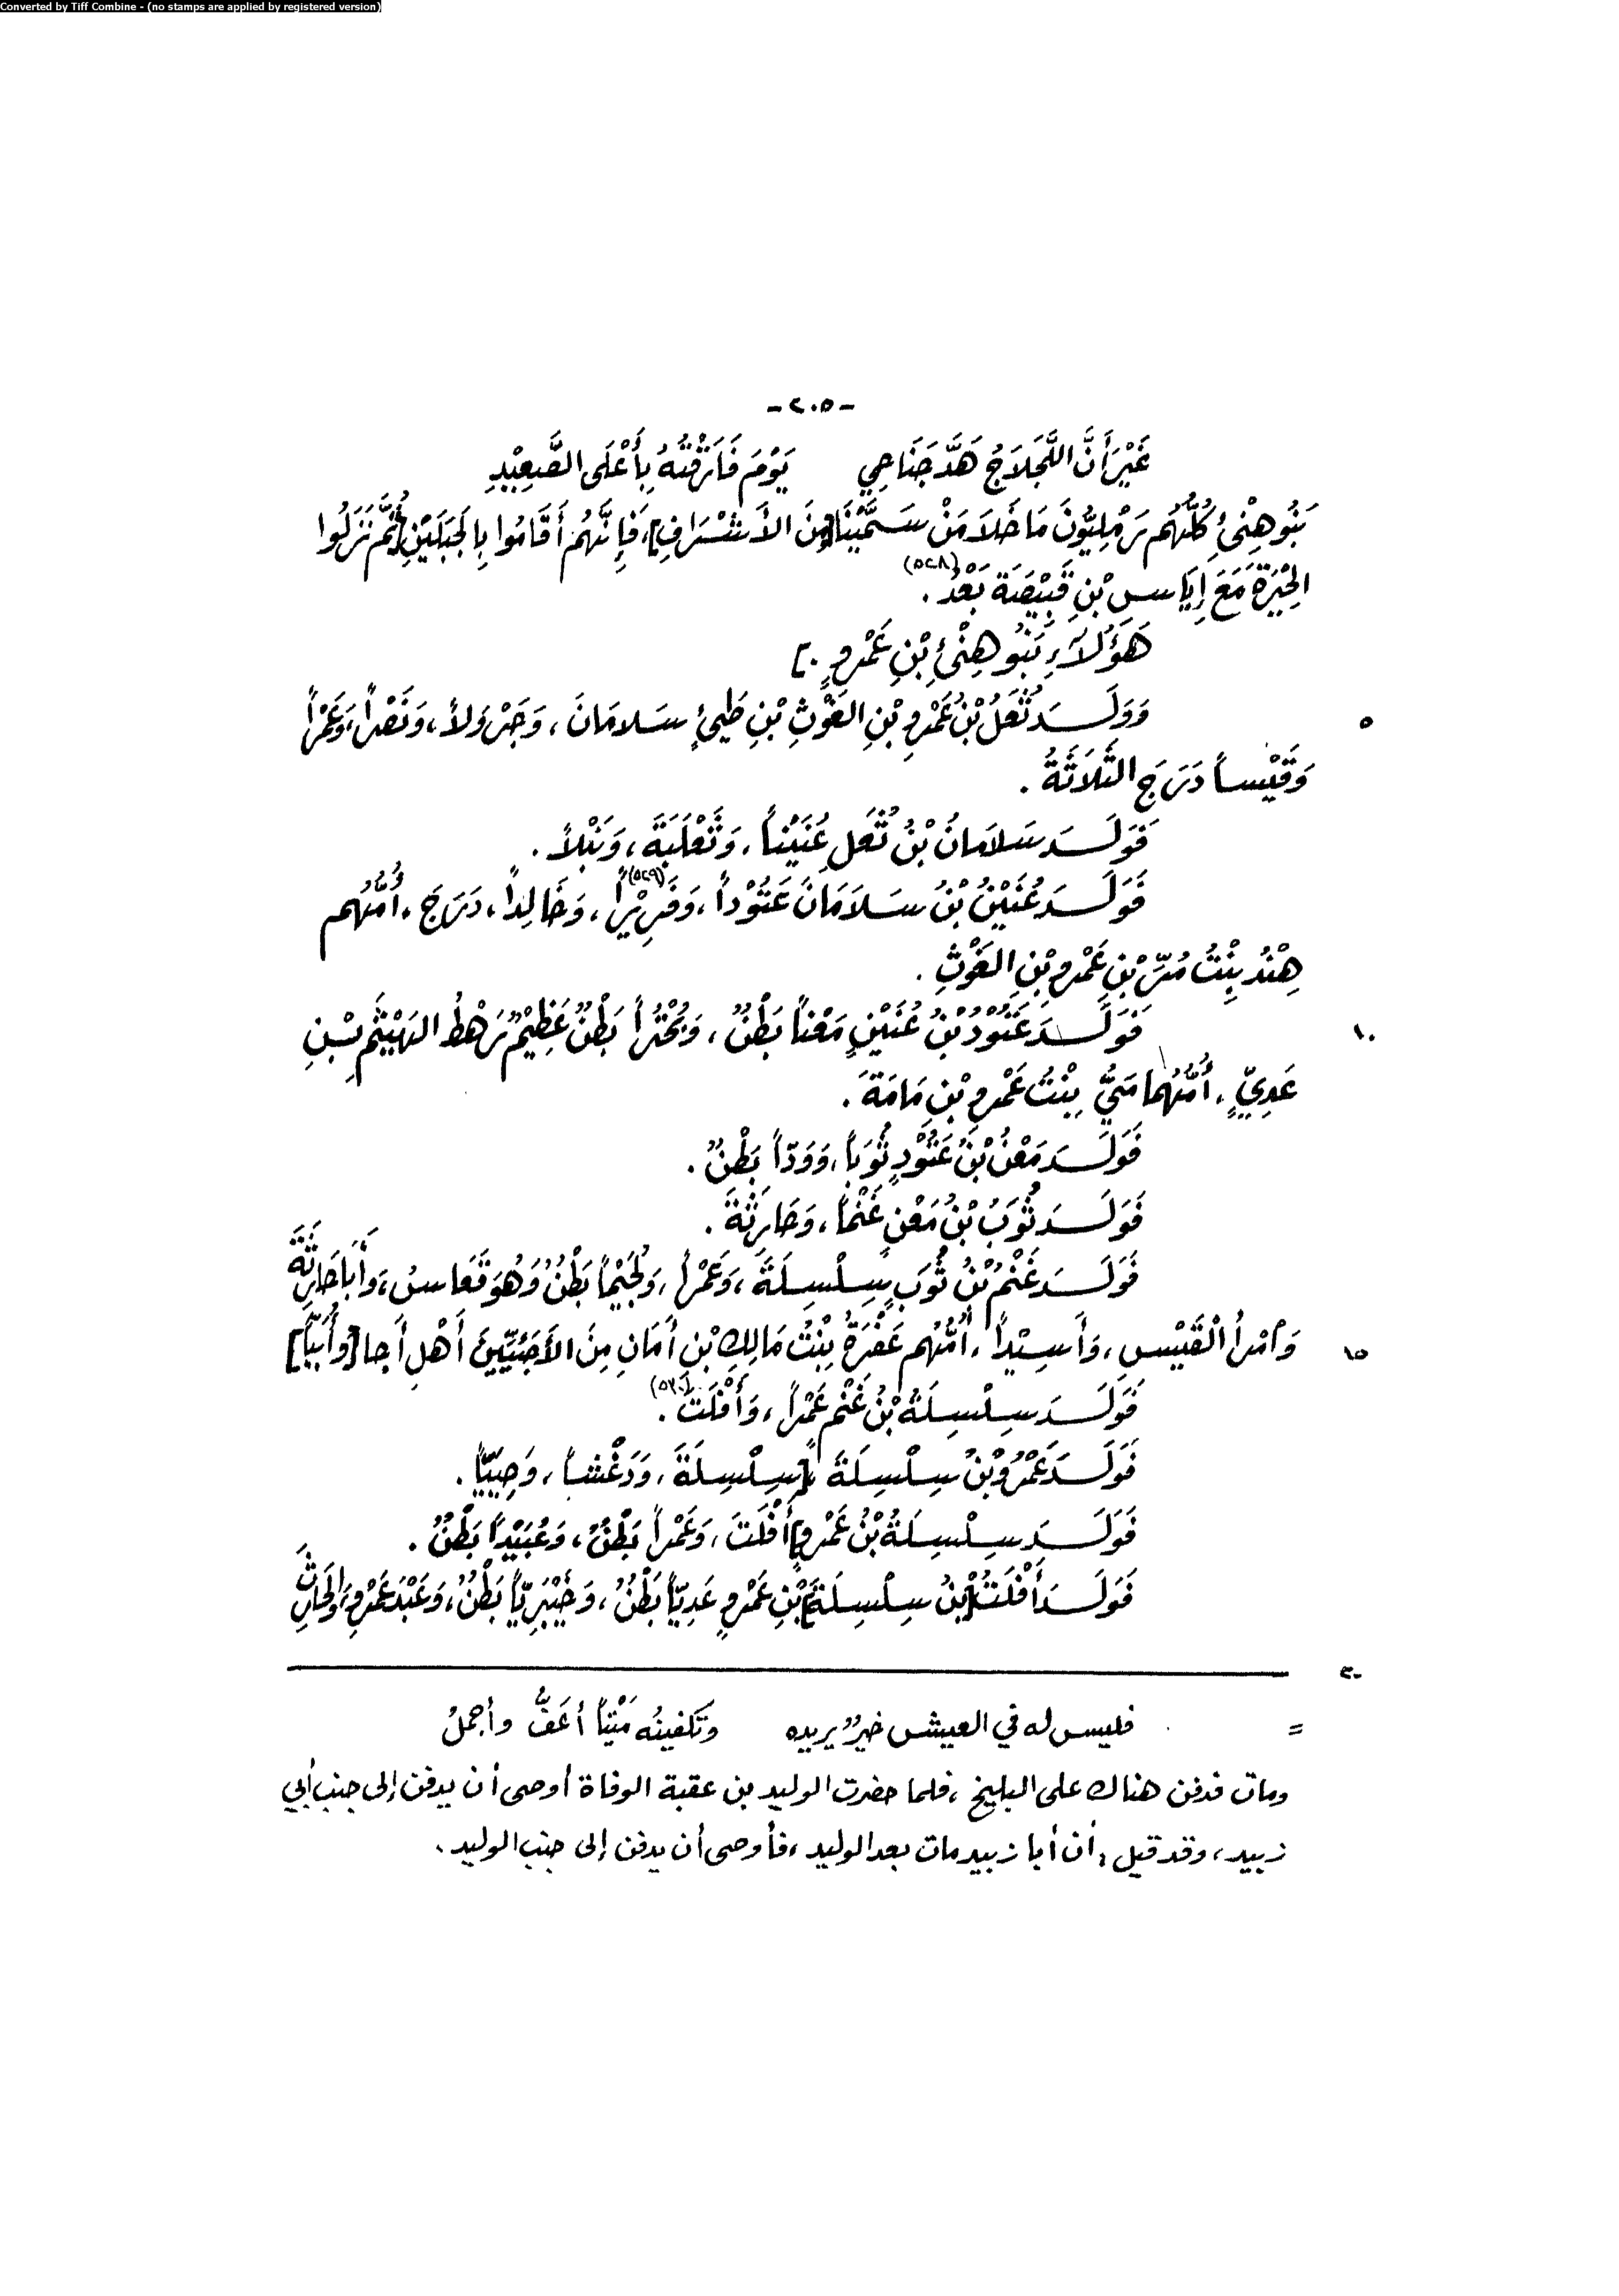 Converted by Tiff Combine - (no stamps are applied by registered version)
-٢٠٥-
غَيْرَ أَنَّ اللَّجَلَاجَ هَدَّ جَنَاحِي يَوْمَ فَارَقْتُهُ بِأَعْلَى الصَّعِيْدِ
بَنُو هِنْئٍ كُلُّهُم رَمْلِيُّونَ مَا خَلَا مَنْ سَمَّيْنَا [مِنَ الأَشْرَافِ]، فَإِنَّهُم أَقَامُوا بِالجَبَلَيْنِ [ثُمَّ نَزَلُوا
الحِيْرَةَ مَعَ إِيَاسِ بْنِ قَبِيْصَةَ بَعْدُ (٥٢٨).
هَؤُلَآءِ بَنُو هِنْئِ بْنِ عَمْرٍو.]
٥ وَوَلَدَ ثُعَلُ بْنُ عَمْرِو بْنِ الغَوْثِ بْنِ طَيِّئٍ سَلامَانَ، وَجَرْوَلاً، وَنَصْراً، وَعَمْراً
وَقَيْساً دَرَجَ الثَّلَاثَةُ.
فَوَلَدَ سَلَامَانُ بْنُ ثُعَلٍ عُنَيْناً، وَثَعْلَبَةَ، وَنَبْلاً.
فَوَلَدَ عُنَيْنُ بْنُ سَلَامَانَ عَتُوْداً، وَفَرِيْراً (٥٢٩)، وَخَالِداً، دَرَجَ، أُمُّهُم
هِنْدُ بِنْتُ مُرِّ بْنِ عَمْرِو بْنِ الغَوْثِ.
١٠ فَوَلَدَ عَتُوْدُ بْنُ عُنَيْنٍ مَعْناً بَطْنٌ، وَبُحْتُراً بَطْنٌ عَظِيْمٌ رَهْطُ الهَيْثَمِ بْنِ
عَدِيٍّ، أُمُّهُمَا مَيُّ بِنْتُ عَمْرِو بْنِ مَامَةَ.
فَوَلَدَ مَعْنُ بْنُ عَتُوْدٍ ثُوَباً، وَوَدّاً بَطْنٌ.
فَوَلَدَ ثُوَبُ بْنُ مَعْنٍ غَنْماً، وَحَارِثَةَ.
فَوَلَدَ غَنْمُ بْنُ ثُوَبٍ سِلْسِلَةَ، وَعَمْراً، وَلُجَيْماً بَطْنٌ وَهُوَ قَعَاسُ، وَأَبَا حَارِثَةَ
١٥ وَامْرَأَ القَيْسِ، وَأَسِيْداً، أُمُّهُم عَفْرَةُ بِنْتُ مَالِكِ بْنِ أَمَانِ مِنَ الأَجَئِيِّينَ أَهْلِ أَجَا [وأُبَيّاً]
فَوَلَدَ سِلْسِلَةُ بْنُ غَنْمٍ عَمْراً، وَأَفْلَتَ (٥٣٠).
فَوَلَدَ عَمْرُو بْنُ سِلْسِلَةَ [سِلْسِلَةَ، وَدَغْشاً، وَحِيَيّاً.
فَوَلَدَ سِلْسِلَةُ بْنُ عَمْرٍو] أَفْلَتَ، وَعَمْراً بَطْنٌ، وَعُبَيْداً بَطْنٌ.
فَوَلَدَ أَفْلَتُ [بْنُ سِلْسِلَةَ] بْنِ عَمْرٍو عَدِيّاً بَطْنٌ، وَخَيْبَرِيّاً بَطْنٌ، وَعَبْدَ عَمْرٍو، وَالحَارِثَ
٢٠
= فليس له في العيش خيرٌ يريده وتكفينُه مَيْتاً أعَفُّ وأجملُ
ومات فدفن هناك على البليخ، فلما حضرت الوليد بن عقبة الوفاة أوصى أن يدفن إلى جنب أبي
زبيد، وقد قيل: أن أبا زبيد مات بعد الوليد، فأوصى أن يدفن إلى جنب الوليد.